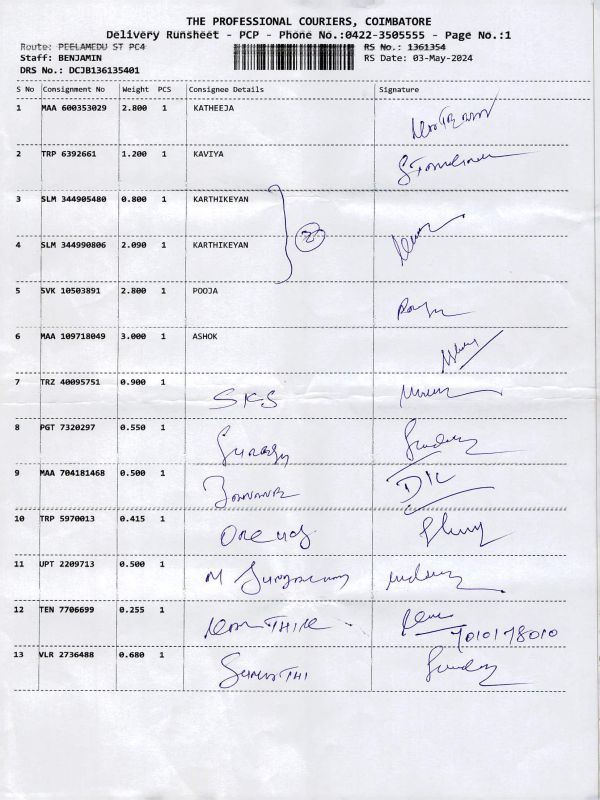 THE PROFESSIONAL COURIERS, COIMBATORE
Delivery Runsheet - PCP - Phone No.:0422-3505555 - Page No.:1
Route: PEELAMEDU ST PC4 RS No.: 1361354
Staff: BENJAMIN RS Date: 03-May-2024
DRS No.: DCJB136135401
S No Consignment No Weight PCS Consignee Details Signature
1 MAA 600353029 2.800 1 KATHEEJA
2 TRP 6392661 1.200 1 KAVIYA
3 SLM 344905480 0.800 1 KARTHIKEYAN
2
4 SLM 344990806 2.090 1 KARTHIKEYAN
5 SVK 10503891 2.800 1 POOJA
6 MAA 109718049 3.000 1 ASHOK
7 TRZ 40095751 0.900 1 SKS
8 PGT 7320297 0.550 1
9 MAA 704181468 0.500 1
10 TRP 5970013 0.415 1
11 UPT 2209713 0.500 1 M
12 TEN 7706699 0.255 1
7010178010
13 VLR 2736488 0.680 1